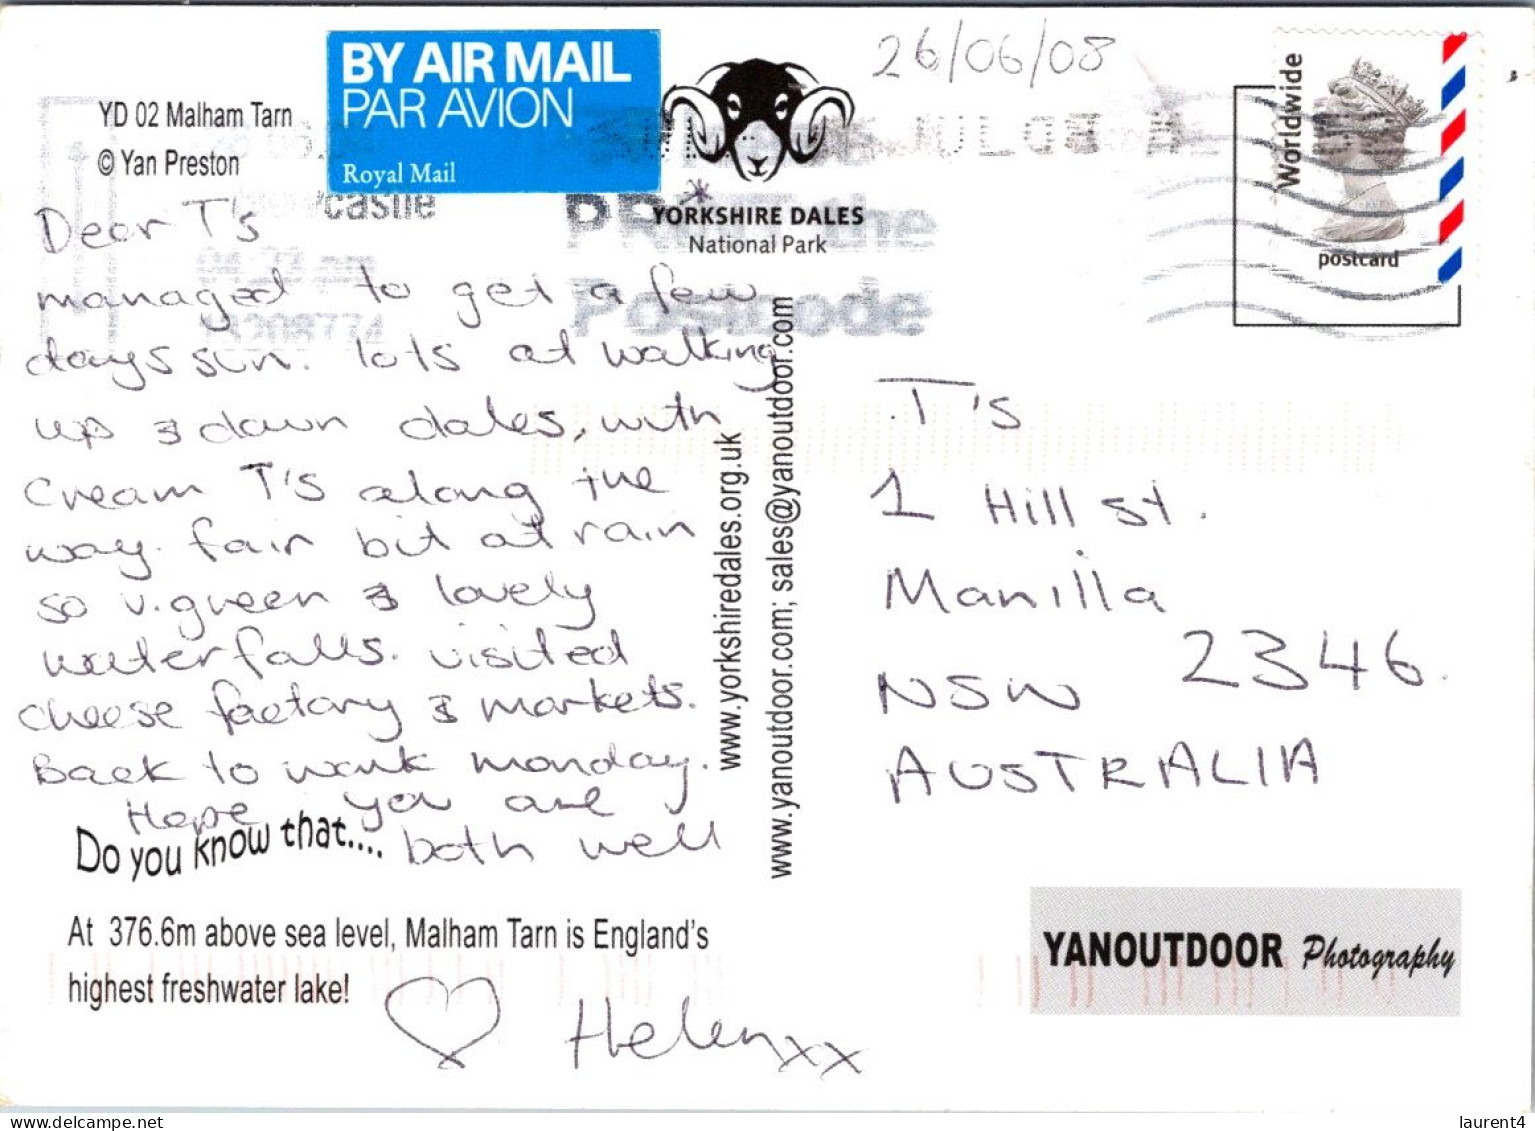 YD 02 Malham Tarn
© Yan Preston
BY AIR MAIL
PAR AVION
Royal Mail
26/06/08
YORKSHIRE DALES
National Park
Worldwide
postcard
castle
the
Postcode
Dear T's
managed to get a few
days sun. lots of walking
up & down dales, with
Cream T's along the
way. fair bit of rain
so v. green & lovely
waterfalls. visited
cheese factory & markets.
Back to work monday.
Hope you are
both well
Do you know that....
At 376.6m above sea level, Malham Tarn is England's
highest freshwater lake!
♡ Helen xx
www.yorkshiredales.org.uk
www.yanoutdoor.com; sales@yanoutdoor.com
T's
1 Hill St.
Manilla
NSW 2346.
AUSTRALIA
YANOUTDOOR Photography
laurent4